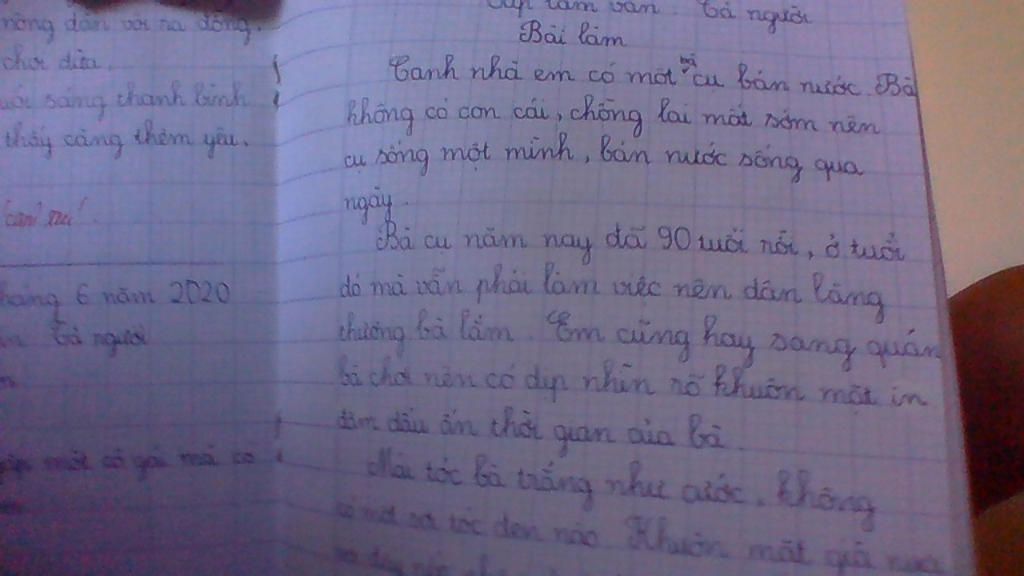 nông dân vời ra đồng.
chơi diều.
sáng thanh bình
thấy càng thêm yêu.
tháng 6 năm 2020
tả người
Tập làm văn Tả người
Bài làm
Cạnh nhà em có một bà cụ bán nước. Bà
không có con cái, chồng lại mất sớm nên
cụ sống một mình, bán nước sống qua
ngày.
Bà cụ năm nay đã 90 tuổi rồi, ở tuổi
đó mà vẫn phải làm việc nên dân làng
thương bà lắm. Em cũng hay sang quán
bà chơi nên có dịp nhìn rõ khuôn mặt in
đậm dấu ấn thời gian của bà.
Mái tóc bà trắng như cước, không
có một sợi tóc đen nào. Khuôn mặt già nua